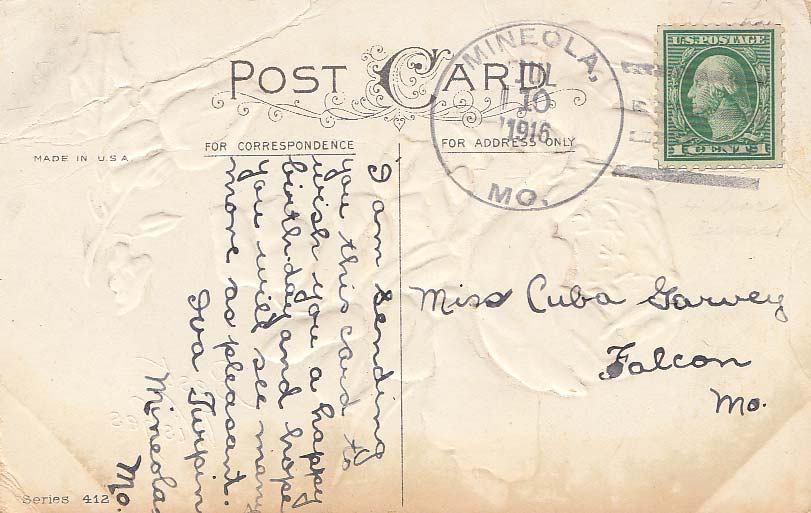 POST CARD
FOR CORRESPONDENCE
FOR ADDRESS ONLY
MADE IN U.S.A.
MINEOLA,
JUL
10
1916
MO.
U.S. POSTAGE
CENTS
I am sending
you this card to
wish you a happy
birthday and hope
you will see many
more as pleasant.
Iva Turpin
Mineola
Mo.
Miss Cuba Garvey
Falcon
Mo.
Series 412